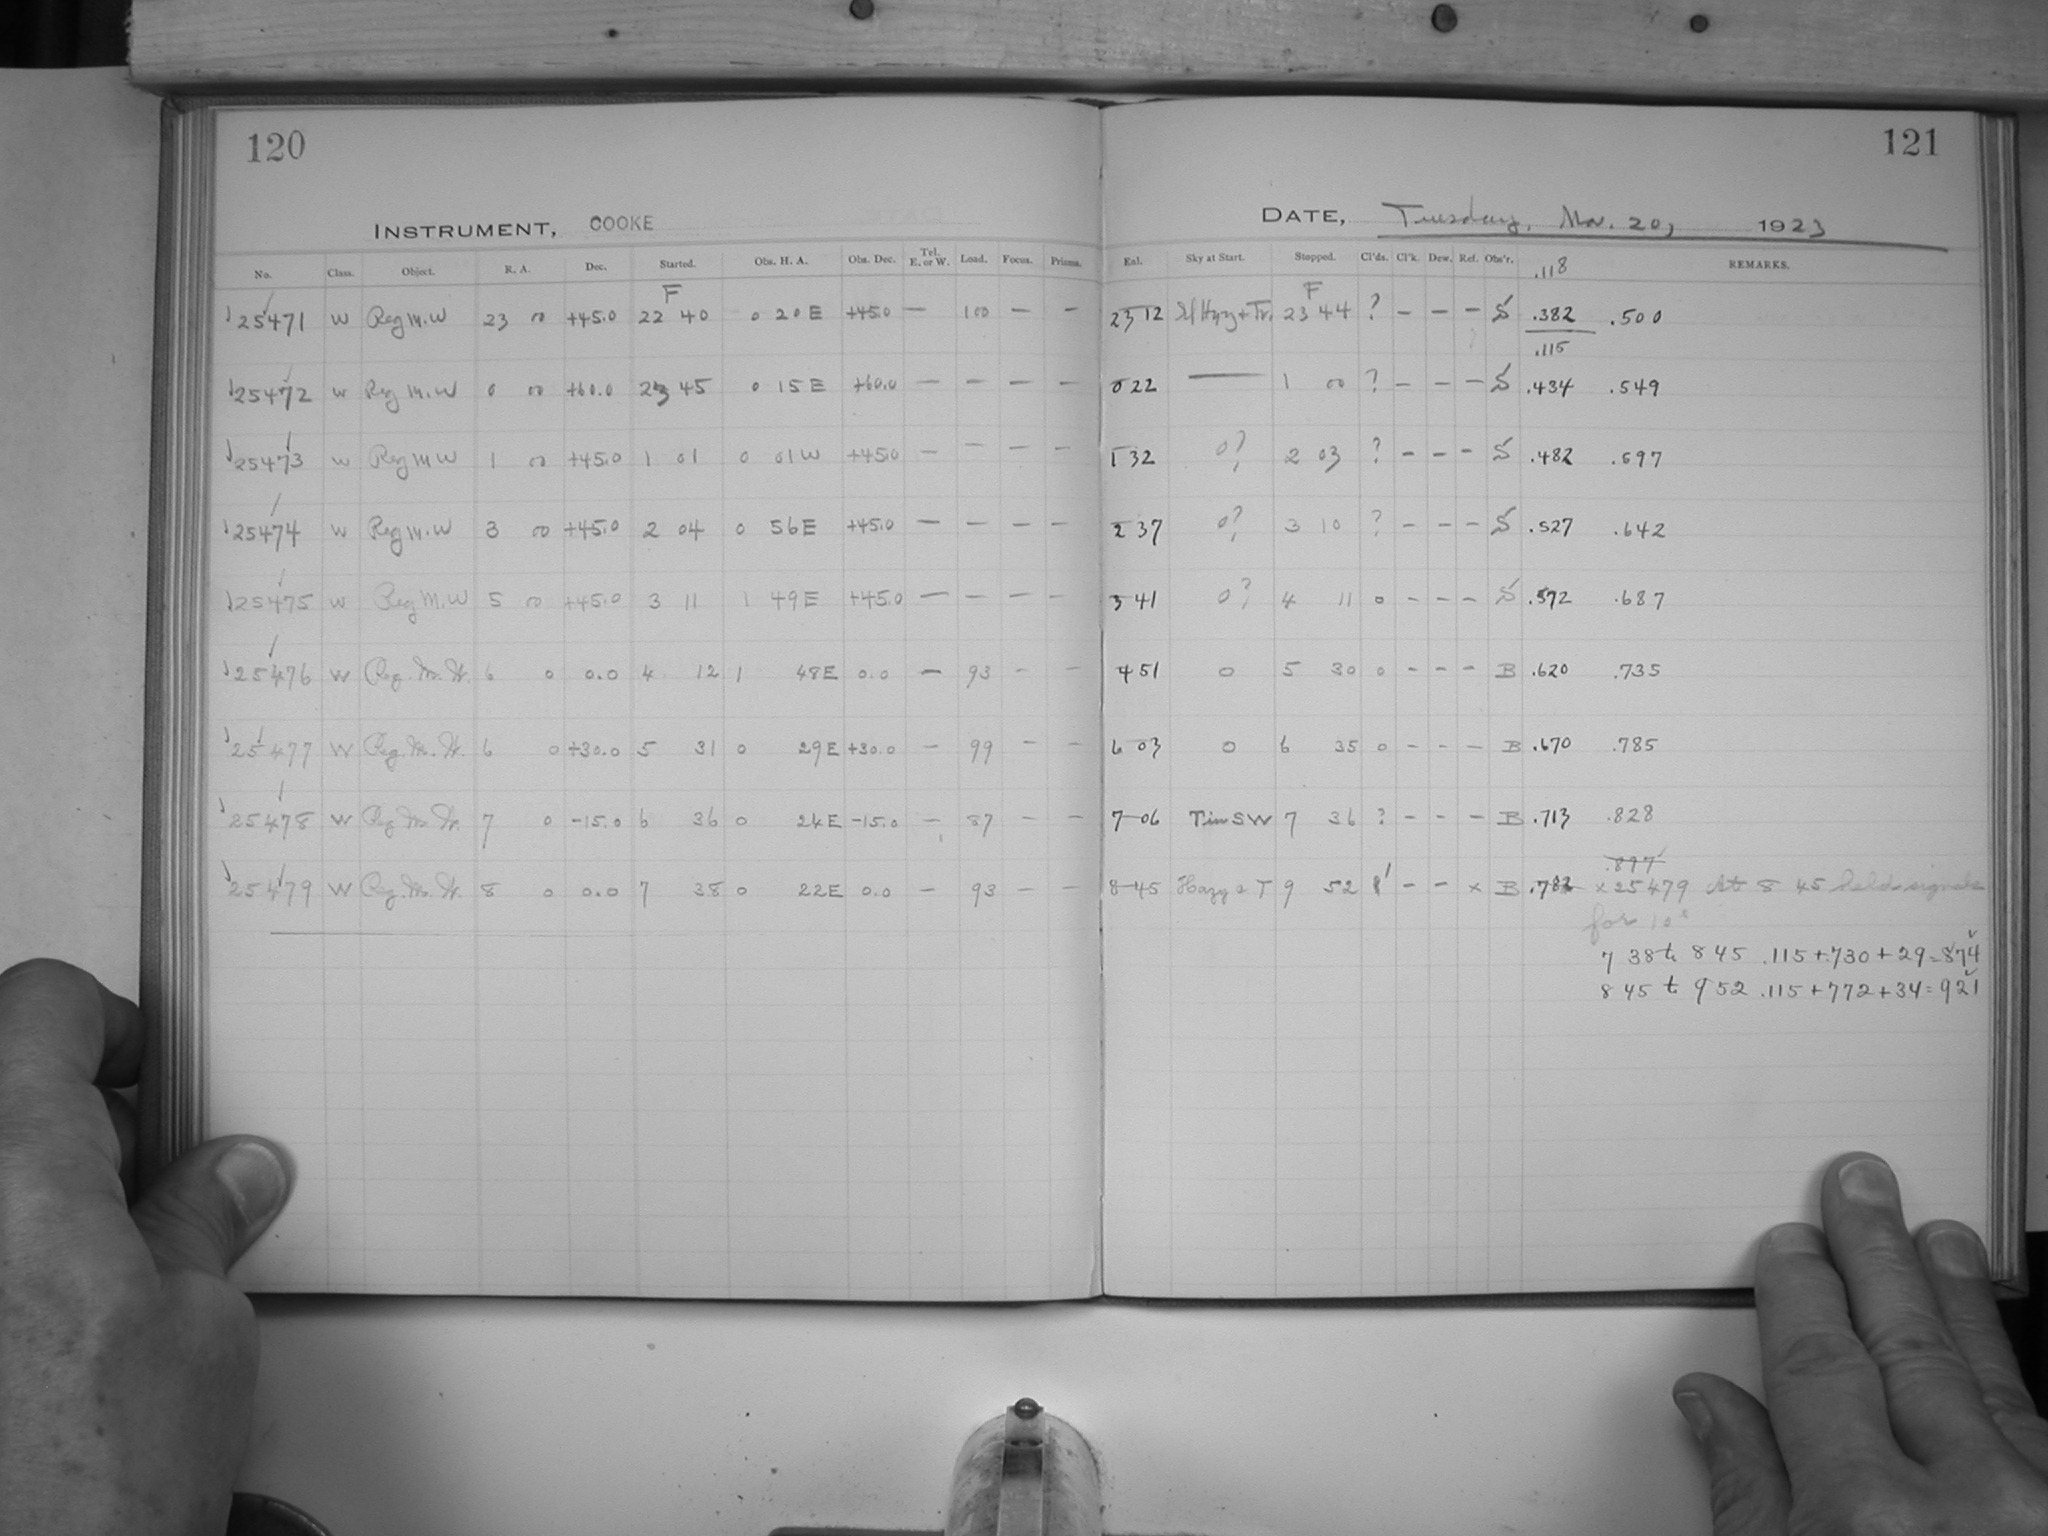 120
INSTRUMENT, COOKE
No. Class. Object. R. A. Dec. Started. Obs. H. A. Obs. Dec. Tel. E. or W. Load. Focus. Prisms.
F
25471 W Reg M.W 23 00 +45.0 22 40 0 20 E +45.0 — 100 — —
25472 W Reg M.W 0 00 +60.0 23 45 0 15 E +60.0 — — — —
25473 W Reg M W 1 00 +45.0 1 01 0 01 W +45.0 — — — —
25474 W Reg M.W 3 00 +45.0 2 04 0 56 E +45.0 — — — —
25475 W Reg M.W 5 00 +45.0 3 11 1 49 E +45.0 — — — —
25476 W Reg. M. W. 6 0 0.0 4 12 1 48 E 0.0 — 93 - -
25477 W Reg. M. W. 6 0 +30.0 5 31 0 29 E +30.0 - 99 - -
25478 W Reg M. W. 7 0 -15.0 6 36 0 24 E -15.0 - 87 - -
25479 W Reg. M. W. 8 0 0.0 7 38 0 22 E 0.0 - 93 - -
121
DATE, Tuesday, Mar. 20, 1923
Eal. Sky at Start. Stopped. Cl'ds. Cl'k. Dew. Ref. Obs'r. .118 REMARKS.
F
23 12 Hazy + Tr. 23 44 ? - - - S .382 .500
.115
0 22 — 1 00 ? - - - S .434 .549
1 32 0? 2 03 ? - - - S .482 .597
2 37 0? 3 10 ? - - - S .527 .642
3 41 0? 4 11 0 - - - S .572 .687
4 51 0 5 30 0 - - - B .620 .735
6 03 0 6 35 0 - - - B .670 .785
7 06 T in SW 7 36 ? - - - B .713 .828
.897
8 45 Hazy & T 9 52 - - x B x 25479 At 8 45 held signals
for 10s
7 38 to 8 45 .115+.730+29=874
8 45 to 9 52 .115+772+34=921